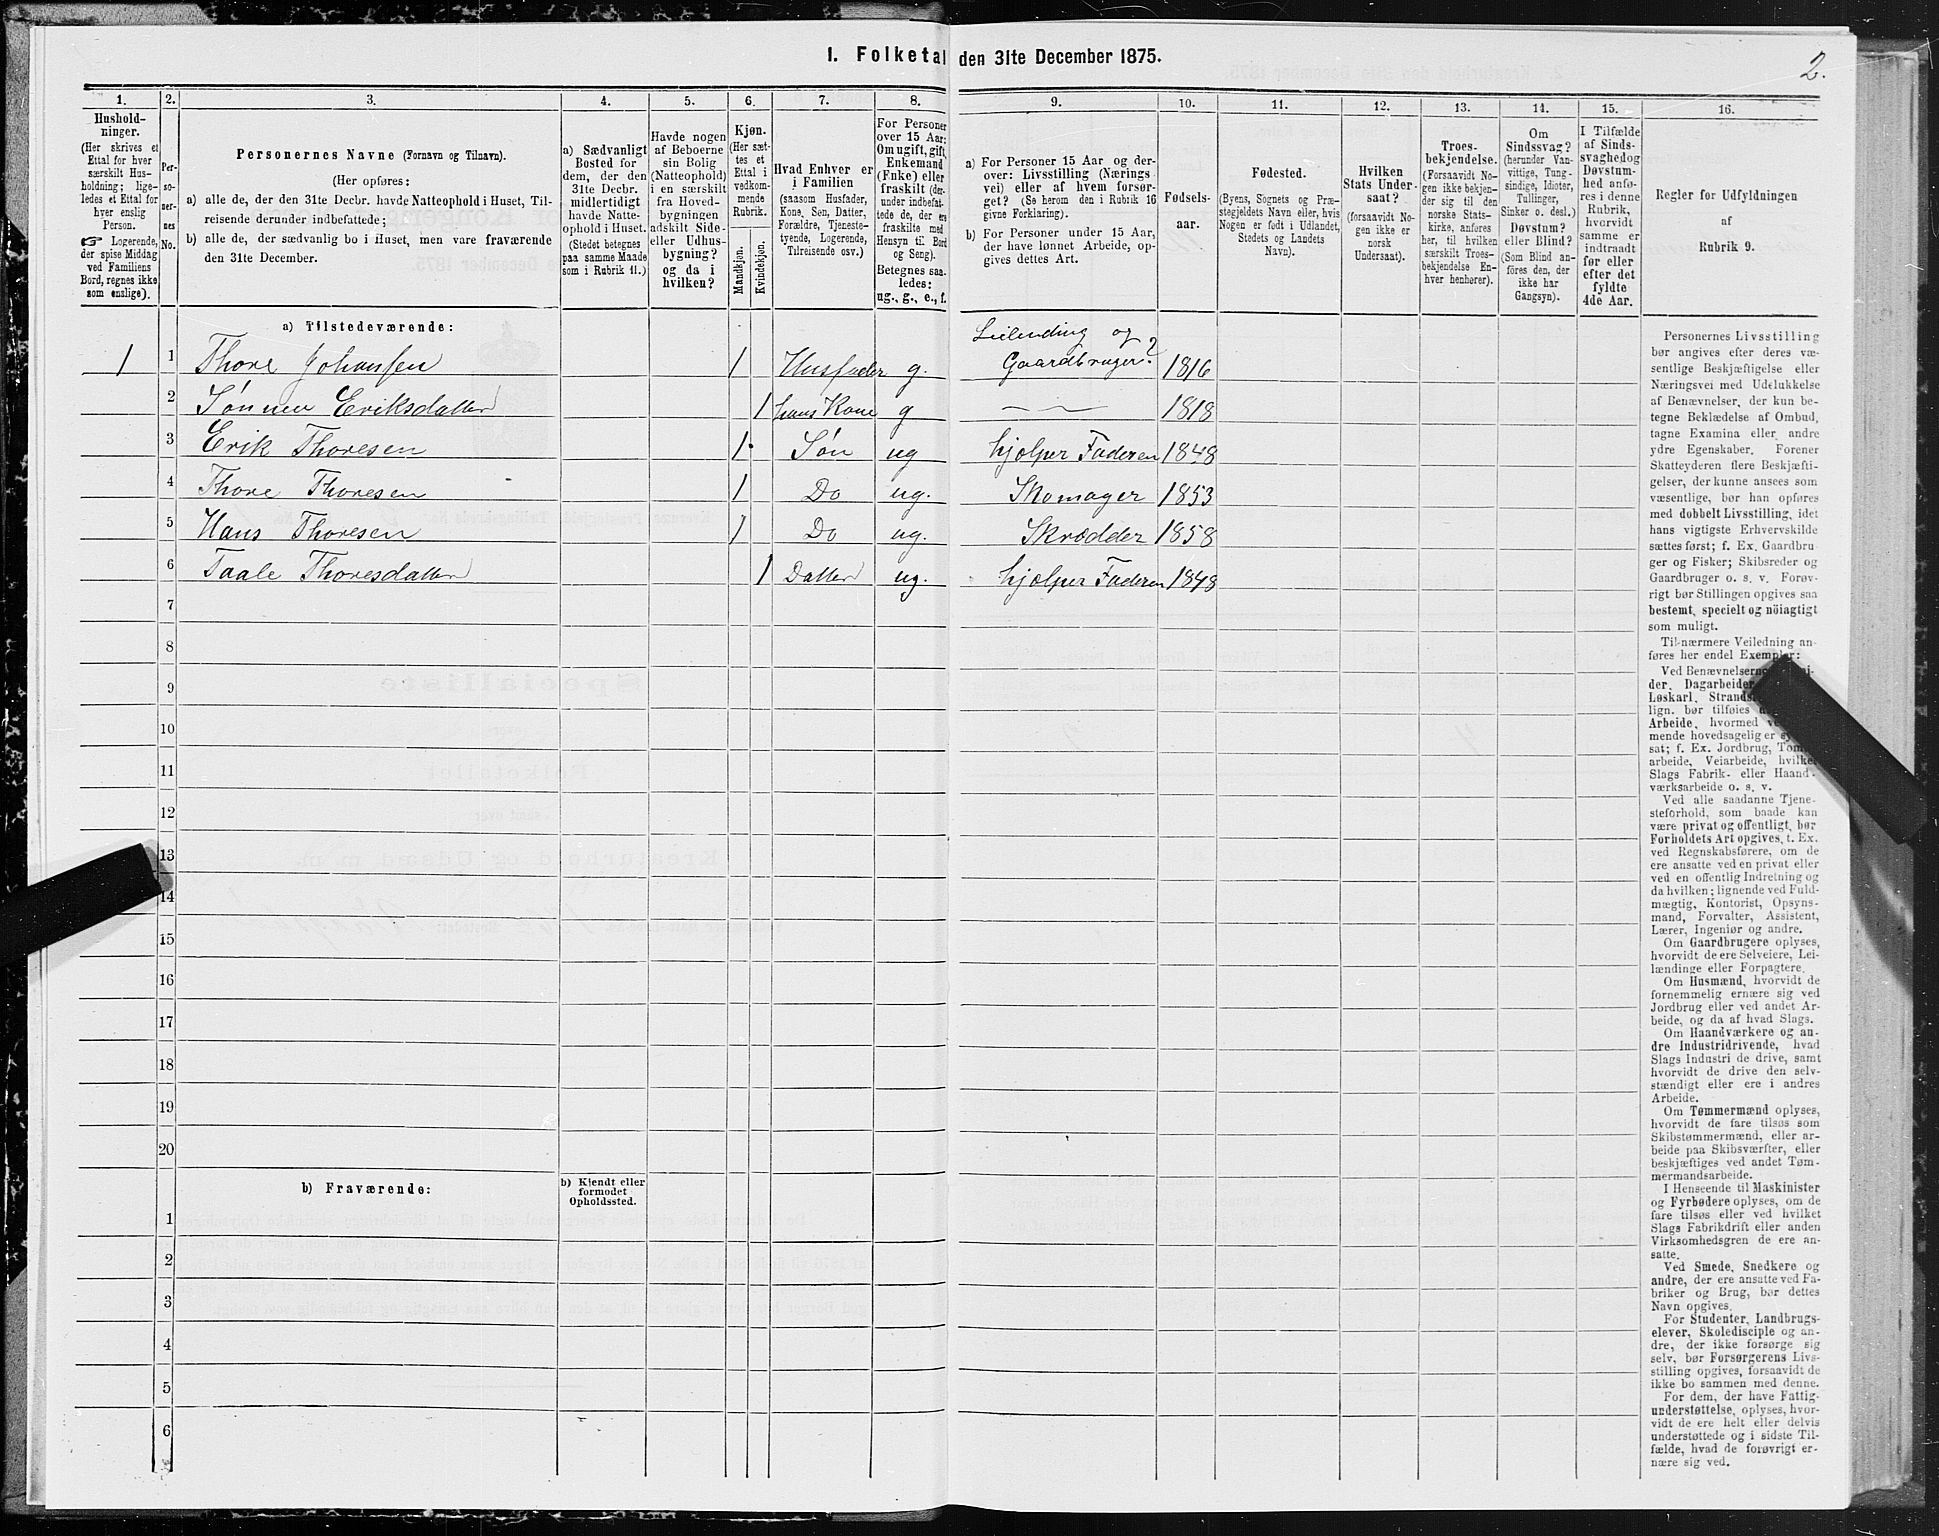 I. Folketal den 31te December 1875.
2.
1.
Hushold-
ninger.
(Her skrives et
Ettal for hver
særskilt Hus-
holdning; lige-
ledes et Ettal for
hver enslig
Person.
☞ Logerende,
der spise Middag
ved Familiens
Bord, regnes ikke
som enslige).
2.
Per-
so-
ner-
nes
No.
3.
Personernes Navne (Fornavn og Tilnavn).
(Her opføres:
a) alle de, der den 31te Decbr. havde Natteophold i Huset, Til-
reisende derunder indbefattede;
b) alle de, der sædvanlig bo i Huset, men vare fraværende
den 31te December.
4.
a) Sædvanligt
Bosted for
dem, der den
31te Decbr.
midlertidigt
havde Natte-
ophold i Huset.
(Stedet betegnes
paa samme Maade
som i Rubrik 11.)
5.
Havde nogen
af Beboerne
sin Bolig
(Natteophold)
i en særskilt
fra Hoved-
bygningen
adskilt Side-
eller Udhus-
bygning?
og da i
hvilken?
6.
Kjøn.
(Her sæt-
tes et
Ettal i
vedkom-
mende
Rubrik.
Mandkjøn.
Kvindekjøn.
7.
Hvad Enhver er
i Familien
(saasom Husfader,
Kone, Søn, Datter,
Forældre, Tjeneste-
tyende, Logerende,
Tilreisende osv.)
8.
For Personer
over 15 Aar:
Om ugift, gift,
Enkemand
(Enke) eller
fraskilt (der-
under indbefat-
tede de, der ere
fraskilte med
Hensyn til Bord
og Seng).
Betegnes saa-
ledes:
ug., g., e., f.
9.
a) For Personer 15 Aar og der-
over: Livsstilling (Nærings
vei) eller af hvem forsør-
get? (Se herom den i Rubrik 16
givne Forklaring).
b) For Personer under 15 Aar,
der have lønnet Arbeide, op-
gives dettes Art.
10.
Fødsels-
aar.
11.
Fødested.
(Byens, Sognets og Præ-
stegjeldets Navn eller, hvis
Nogen er født i Udlandet,
Stedets og Landets
Navn).
12.
Hvilken
Stats Under-
saat?
(forsaavidt No-
gen ikke er
norsk
Undersaat).
13.
Troes-
bekjendelse.
(Forsaavidt No-
gen ikke bekjen-
der sig til den
norske Stats-
kirke, anføres
her, til hvilken
særskilt Troes-
bekjendelse En-
hver henhører).
14.
Om
Sindssvag?
(herunder Van-
vittige, Tung-
sindige, Idioter,
Tullinger,
Sinker o. desl.)
Døvstum?
eller Blind?
(Som Blind an-
føres den, der
ikke har
Gangsyn).
15.
I Tilfælde
af Sinds-
svaghed og
Døvstum-
hed anfø-
res i denne
Rubrik,
hvorvidt
samme er
indtraadt
før eller
efter det
fyldte
4de Aar.
16.
Regler for Udfyldningen
af
Rubrik 9.
a) Tilstedeværende:
1 1 Thore Johansen 1 Husfader g. Leilending og
Gaardbruger? 1816
2 Sønnen Eriksdatter 1 hans Kone g — 1818
3 Erik Thoresen 1 Søn ug hjælper Faderen 1848
4 Thore Thoresen 1 Do ug. Skomager 1853
5 Hans Thoresen 1 Do ug. Skrædder 1858
6 Taale Thoresdatter 1 Datter ug. hjælper Faderen 1848
7
8
9
10
11
12
13
14
15
16
17
18
19
20
b) Fraværende:
b) Kjendt eller
formodet
Opholdssted.
1
2
3
4
5
6
Personernes Livsstilling
bør angives efter deres væ-
sentlige Beskjæftigelse eller
Næringsvei med Udelukkelse
af Benævnelser, der kun be-
tegne Beklædelse af Ombud,
tagne Examina eller andre
ydre Egenskaber. Forener
Skatteyderen flere Beskjæfti-
gelser, der kunne ansees som
væsentlige, bør han opføres
med dobbelt Livsstilling, idet
hans vigtigste Erhvervskilde
sættes først; f. Ex. Gaardbru-
ger og Fisker; Skibsreder og
Gaardbruger o. s. v. Forøv-
rigt bør Stillingen opgives saa
bestemt, specielt og nöiagtigt
som muligt.
Til nærmere Veiledning an-
føres her endel Exempler:
Ved Benævnelserne
der, Dagarbeider
Løskarl,
lign. bør tilføies
Arbeide, hvormed
mende hovedsagelig er
sat; f. Ex. Jordbrug,
arbeide, Veiarbeide, hvilket
Slags Fabrik- eller Haand-
værksarbeide o. s. v.
Ved alle saadanne Tjene-
steforhold, som baade kan
være privat og offentligt, bør
Forholdets Art opgives, t. Ex.
ved Regnskabsførere, om de
ere ansatte ved en privat eller
ved en offentlig Indretning og
da hvilken; lignende ved Fuld-
mægtig, Kontorist, Opsyns-
mand, Forvalter, Assistent,
Lærer, Ingeniør og andre.
Om Gaardbrugere oplyses,
hvorvidt de ere Selveiere, Lei-
lændinge eller Forpagtere.
Om Husmænd, hvorvidt de
fornemmelig ernære sig ved
Jordbrug eller ved andet Ar-
beide, og da af hvad Slags.
Om Haandværkere og an-
dre Industridrivende, hvad
Slags Industri de drive, samt
hvorvidt de drive den selv-
stændigt eller ere i andres
Arbeide.
Om Tømmermænd oplyses,
hvorvidt de fare tilsøs som
Skibstømmermænd, eller ar-
beide paa Skibsværfter, eller
beskjæftiges ved andet Tøm-
mermandsarbeide.
I Henseende til Maskinister
og Fyrbødere oplyses, om de
fare tilsøs eller ved hvilket
Slags Fabrikdrift eller anden
Virksomhedsgren de ere an-
satte.
Ved Smede, Snedkere og
andre, der ere ansatte ved Fa-
briker og Brug, bør dettes
Navn opgives.
For Studenter, Landbrugs-
elever, Skoledisciple og an-
dre, der ikke forsørge sig
selv, bør Forsørgerens Livs-
stilling opgives, forsaavidt de
ikke bo sammen med denne.
For dem, der have Fattig-
understøttelse, oplyses, hvor-
vidt de ere helt eller delvis
understøttede og i sidste Til-
fælde, hvad de forøvrigt er-
nære sig ved.